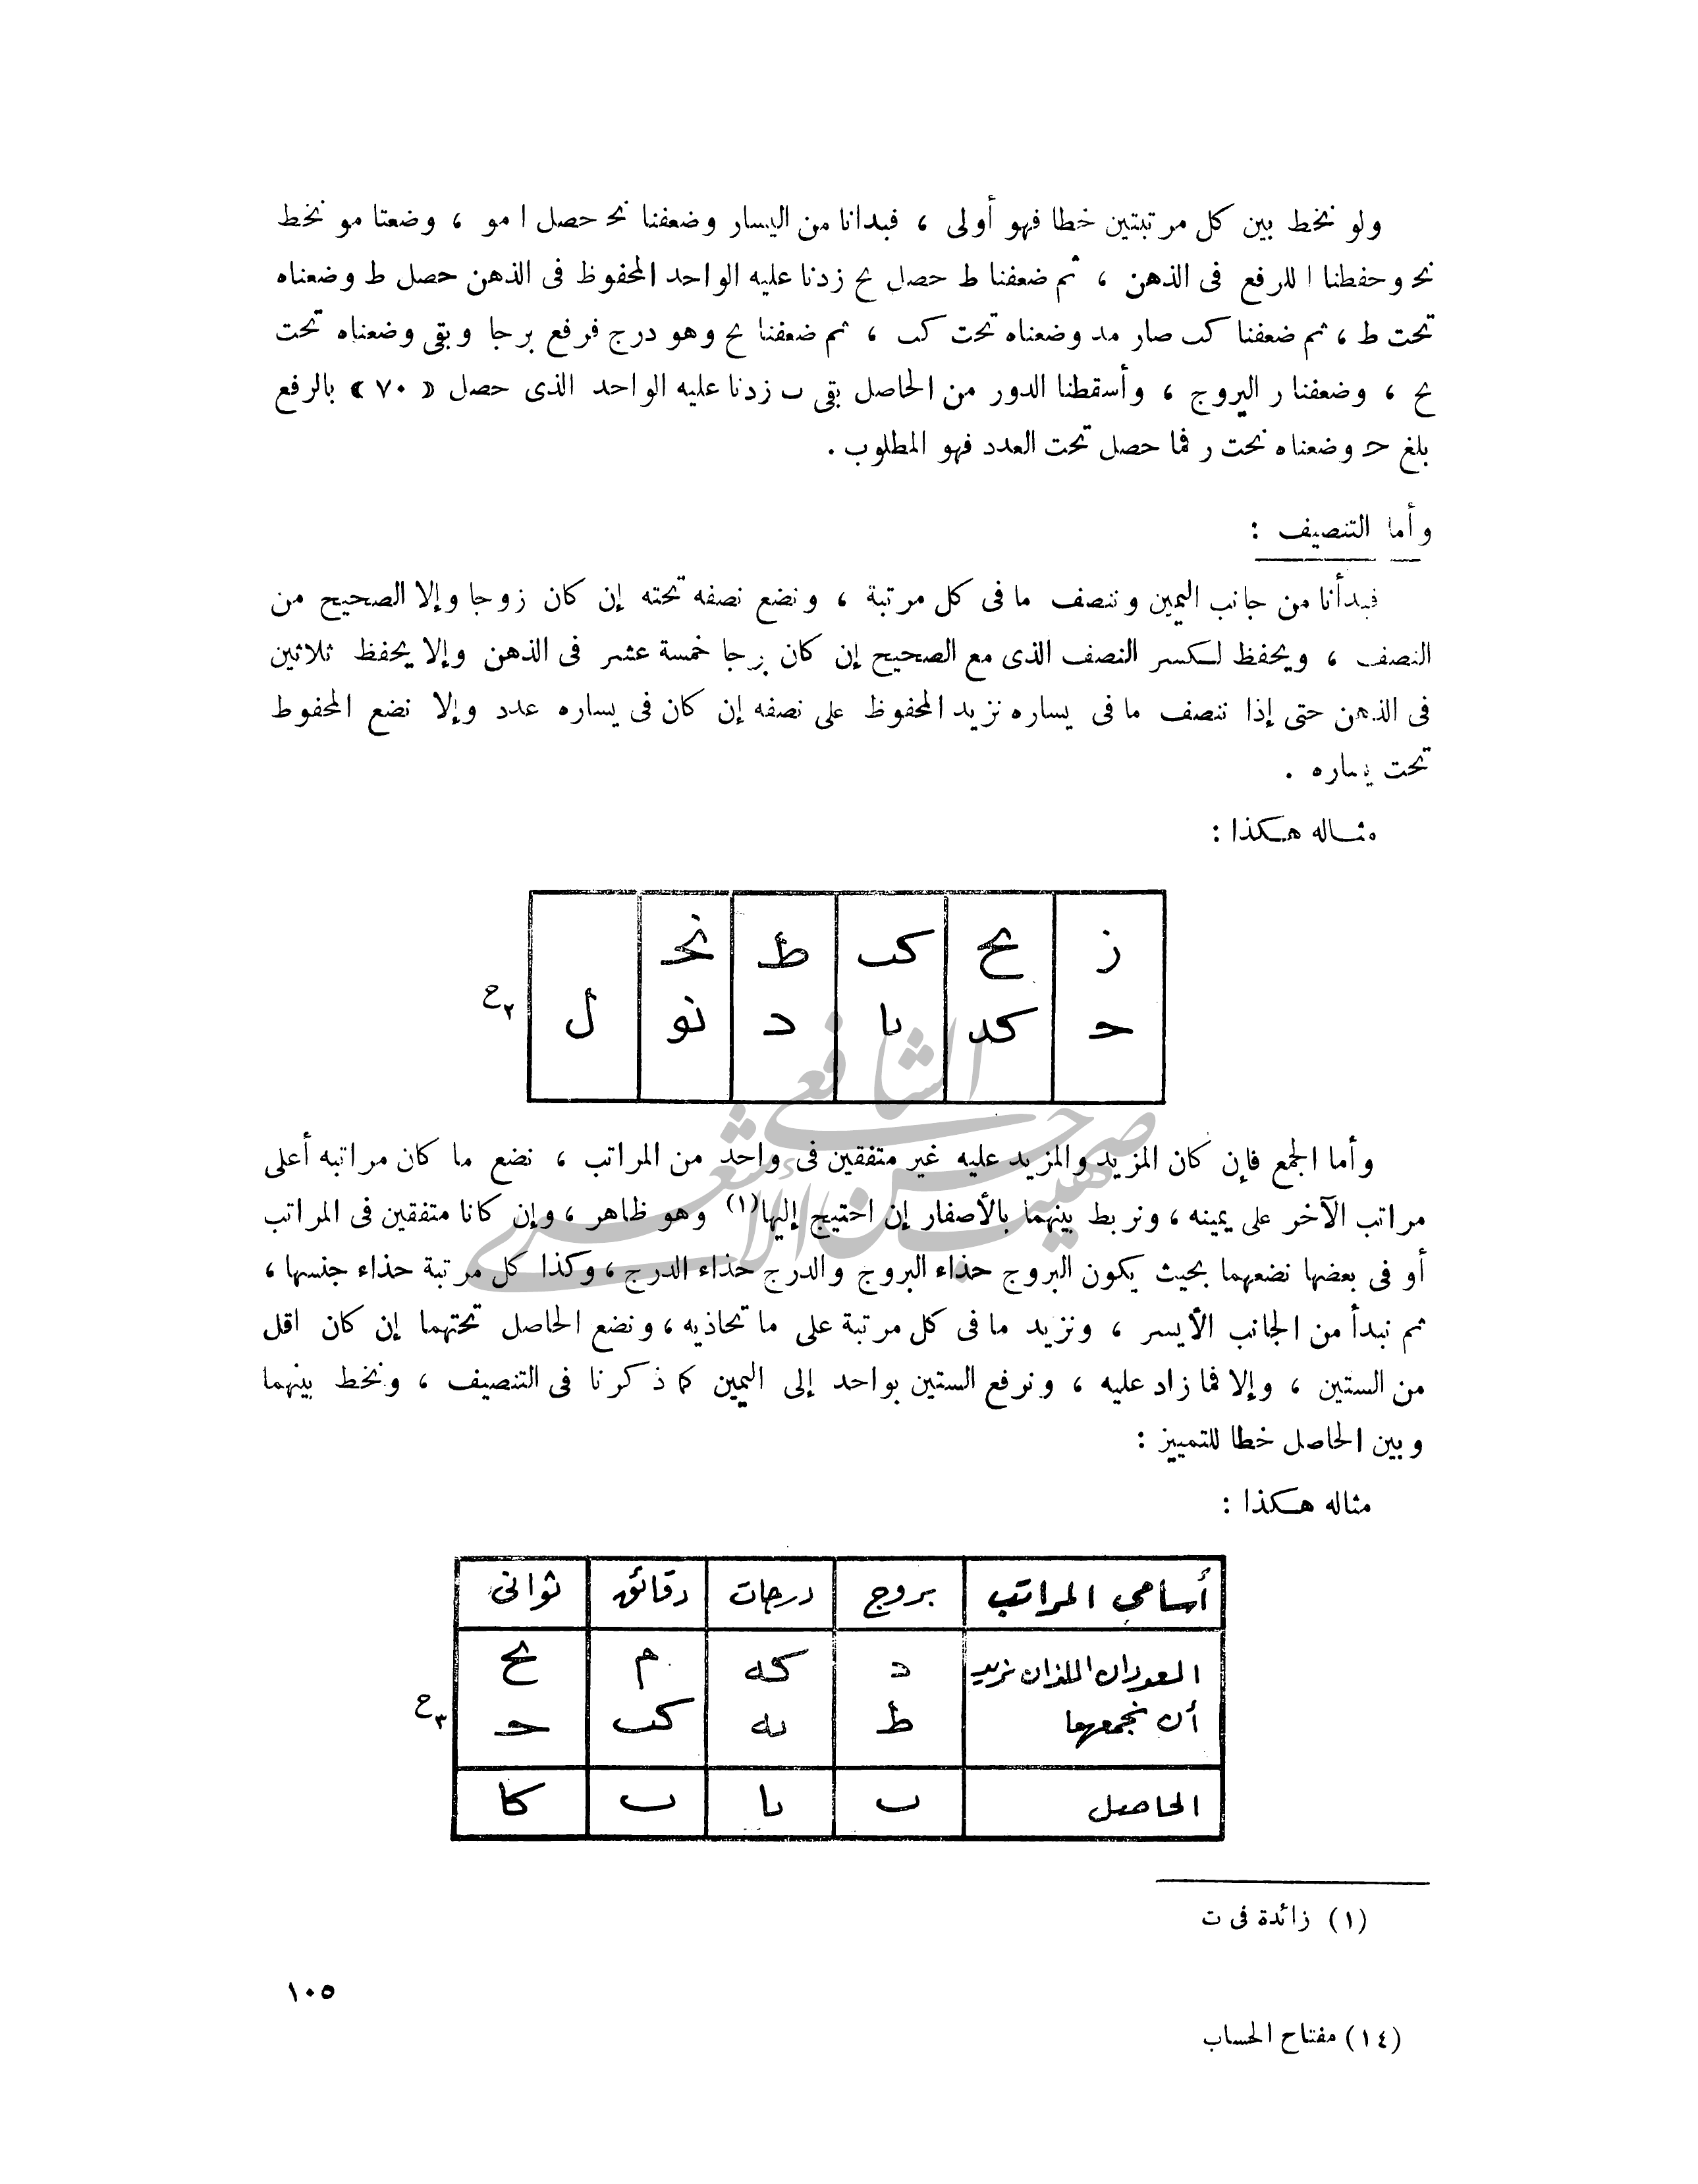 ولو نخط بين كل مرتبتين خطا فهو أولى ، فبدانا من اليسار وضعفنا نحـ حصل ا مو ، وضعتا مو نخط
نحـ وحفطنا ا للرفع فى الذهن ، ثم ضعفنا ط حصل يح زدنا عليه الواحد المحفوظ فى الذهن حصل ط وضعناه
تحت ط ، ثم ضعفنا كب صار مد وضعناه تحت كب ، ثم ضعفنا يح وهو درج فرفع برجا وبقى وضعناه تحت
يح ، وضعفنا ر البروج ، وأسقطنا الدور من الحاصل بقى ب زدنا عليه الواحد الذى حصل « ٧٠ » بالرفع
بلغ حـ وضعناه نحت ر فما حصل تحت العدد فهو المطلوب .
وأما التنصيف :
فبدأنا من جانب اليمين وننصف ما فى كل مرتبة ، ونضع نصفه تحته إن كان زوجا وإلا الصحيح من
النصف ، ويحفظ لكسر النصف الذى مع الصحيح إن كان برجا خمسة عشر فى الذهن وإلا يحفظ ثلاثين
فى الذهن حتى إذا ننصف ما فى يساره نزيد المحفوظ على نصفه إن كان فى يساره عدد وإلا نضع المحفوط
تحت يساره .
مثاله هكذا :
ز يح كب ط نحـ
حـ كد يا د نو ل
ح٢
وأما الجمع فإن كان المزيد والمزيد عليه غير متفقين فى واحد من المراتب ، نضع ما كان مراتبه أعلى
مراتب الآخر على يمينه ، ونربط بينهما بالأصفار إن احتيج إليها(١) وهو ظاهر ، وإن كانا متفقين فى المراتب
أو فى بعضها نضعهما بحيث يكون البروج حذاء البروج والدرج حذاء الدرج ، وكذا كل مرتبة حذاء جنسها ،
ثم نبدأ من الجانب الأيسر ، ونزيد ما فى كل مرتبة على ما تحاذيه ، ونضع الحاصل تحتهما إن كان اقل
من الستين ، وإلا فما زاد عليه ، ونرفع الستين بواحد إلى اليمين كما ذكرنا فى التنصيف ، ونخط بينهما
وبين الحاصل خطا للتمييز :
مثاله هكذا :
أسامى المراتب بروج درجات دقائق ثوانى
العددان اللذان نريد د كه م يح
أن نجمعهما ط يه كب حـ
ح٣
الحاصل ب يا ب كا
(١) زائدة فى ت
١٠٥
(١٤) مفتاح الحساب
صهيب حسن الشافعي الأشعري